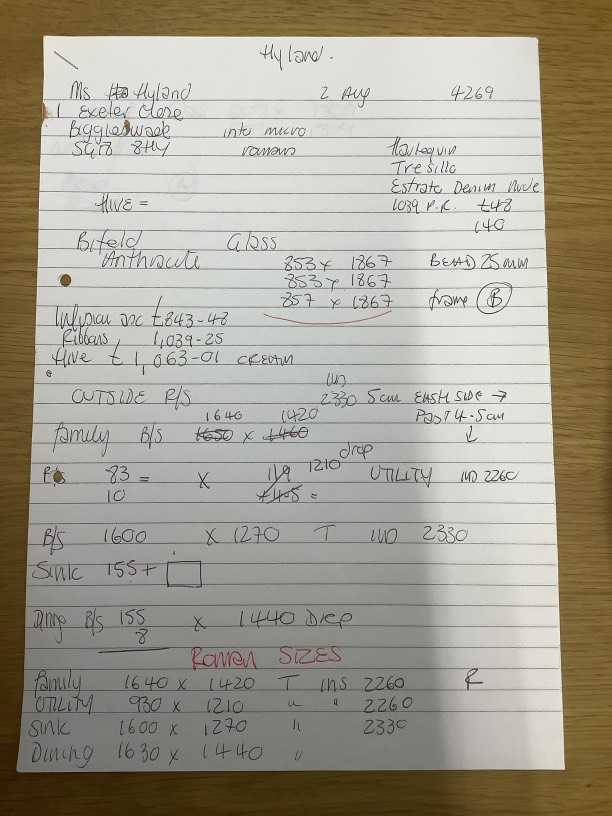 Hyland.
Ms Hyland 2 Aug 4269
1 Exeter Close
Biggleswade into micro
SG18 8HY romans Harlequin
Tresillo
Estrato Denim Nude
HIVE = 1039 P.R. £48
140
Bifold Glass
Anthracite 853 x 1867 BEAD 25mm
853 x 1867
857 x 1867 frame B
Infusion asc £843-48
Ribbons 1,039-25
Hive £1,063-01 CREAM
INS
OUTSIDE R/S 2330 5cm EACH SIDE →
1640 1420 Past 4.5cm
family B/S 1650 x 1460 ↓
drop
83 = x 119 1210 UTILITY IND 2260
10 +4.5 =
B/S 1600 x 1270 T IND 2330
Sink 155+
Dining B/S 155 x 1440 Drop
8
Roman SIZES
family 1640 x 1420 T ins 2260 R
UTILITY 930 x 1210 " " 2260
Sink 1600 x 1270 " 2330
Dining 1630 x 1440 "